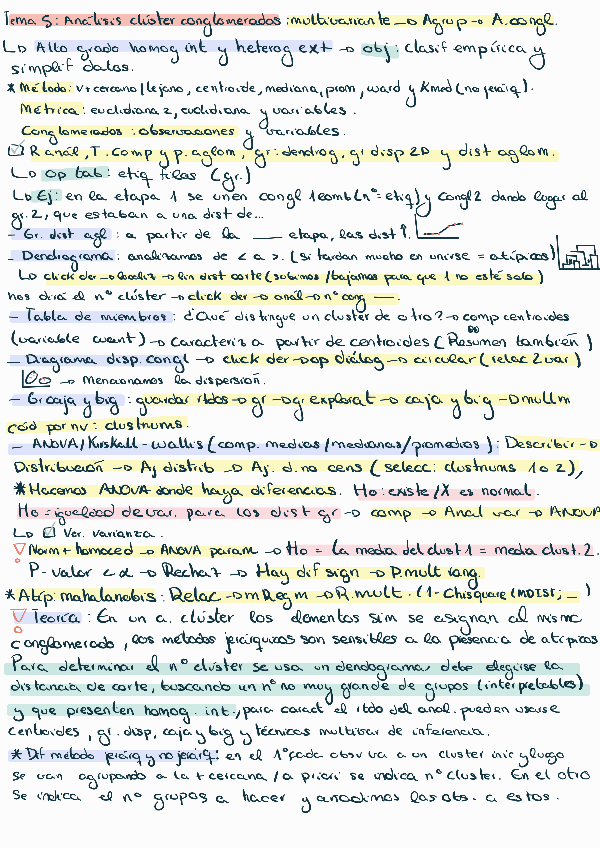 Tema 5: Análisis clúster conglomerados: multivariante → Agrup → A. congl.
↳ Alto grado homog int y heterog ext → obj: clasif empírica y
simplif datos.
* Método: v+cercano/lejano, centroide, mediana, prom, ward y Kmed (no jerárq).
Métrica: euclidiana 2, euclidiana y variables.
Conglomerados: observaciones y variables.
☑ R anál, T. comp y p. aglom, gr: dendrog, gr disp 2D y dist aglom.
↳ Op tab: etiq filas (gr.)
↳ Ej: en la etapa 1 se unen congl 1 comb (nº = etiq) y congl 2 dando lugar al
gr. 2, que estaban a una dist de...
- Gr. dist agl: a partir de la ___ etapa, las dist ↑.
- Dendrograma: analizamos de < a >. (si tardan mucho en unirse = atípicos)
↳ click der → localiz → lin dist corte (subimos/bajamos para que 1 no esté solo)
nos dirá el nº clúster → click der → anál → nº cong —.
- Tabla de miembros: ¿Qué distingue un cluster de otro? → comp centroides
(variable cuant) → caracteriz a partir de centroides (Resumen también)
- Diagrama disp. congl → click der → op diálog → circular (relac 2 var)
→ Mencionamos la dispersión.
- Gr caja y big: guardar rtdos → gr → gr explorat → caja y big → D mullm
cód por nv: clustnums.
- ANOVA/Kruskall-Wallis (comp. medias/medianas/promedios): Describir →
Distribución → Aj distrib → Aj. d. no cens (selecc: clustnums 1 o 2),
* Hacemos ANOVA donde haya diferencias. Ho: existe/X es normal.
Ho = igualdad de var. para los dist gr → comp → Anal var → ANOVA
↳ ☑ Ver. varianza.
▽ Norm + homoced → ANOVA param → Ho = la media del clust 1 = media clust. 2.
P-valor < α → Rechaz → Hay dif sign → P. mult rang.
* Atíp: mahalanobis: Relac → m Reg m → R. mult. (1-Chisquare (MDIST; _ )
▽ Teoría: En un a. clúster los elementos sim se asignan al mismo
conglomerado, los métodos jerárquicos son sensibles a la presencia de atípicos
Para determinar el nº clúster se usa un dendograma, debe elegirse la
distancia de corte, buscando un nº no muy grande de grupos (interpretables)
y que presenten homog. int., para caract el rtdo del anal. pueden usarse
centroides, gr. disp, caja y big y técnicas multivar de inferencia.
* Dif método jerárq y no jerárq: en el 1º cada obs va a un cluster inic y luego
se van agrupando a la + cercana/a priori se indica nº cluster. En el otro
se indica el nº grupos a hacer y añadimos las obs. a estos.